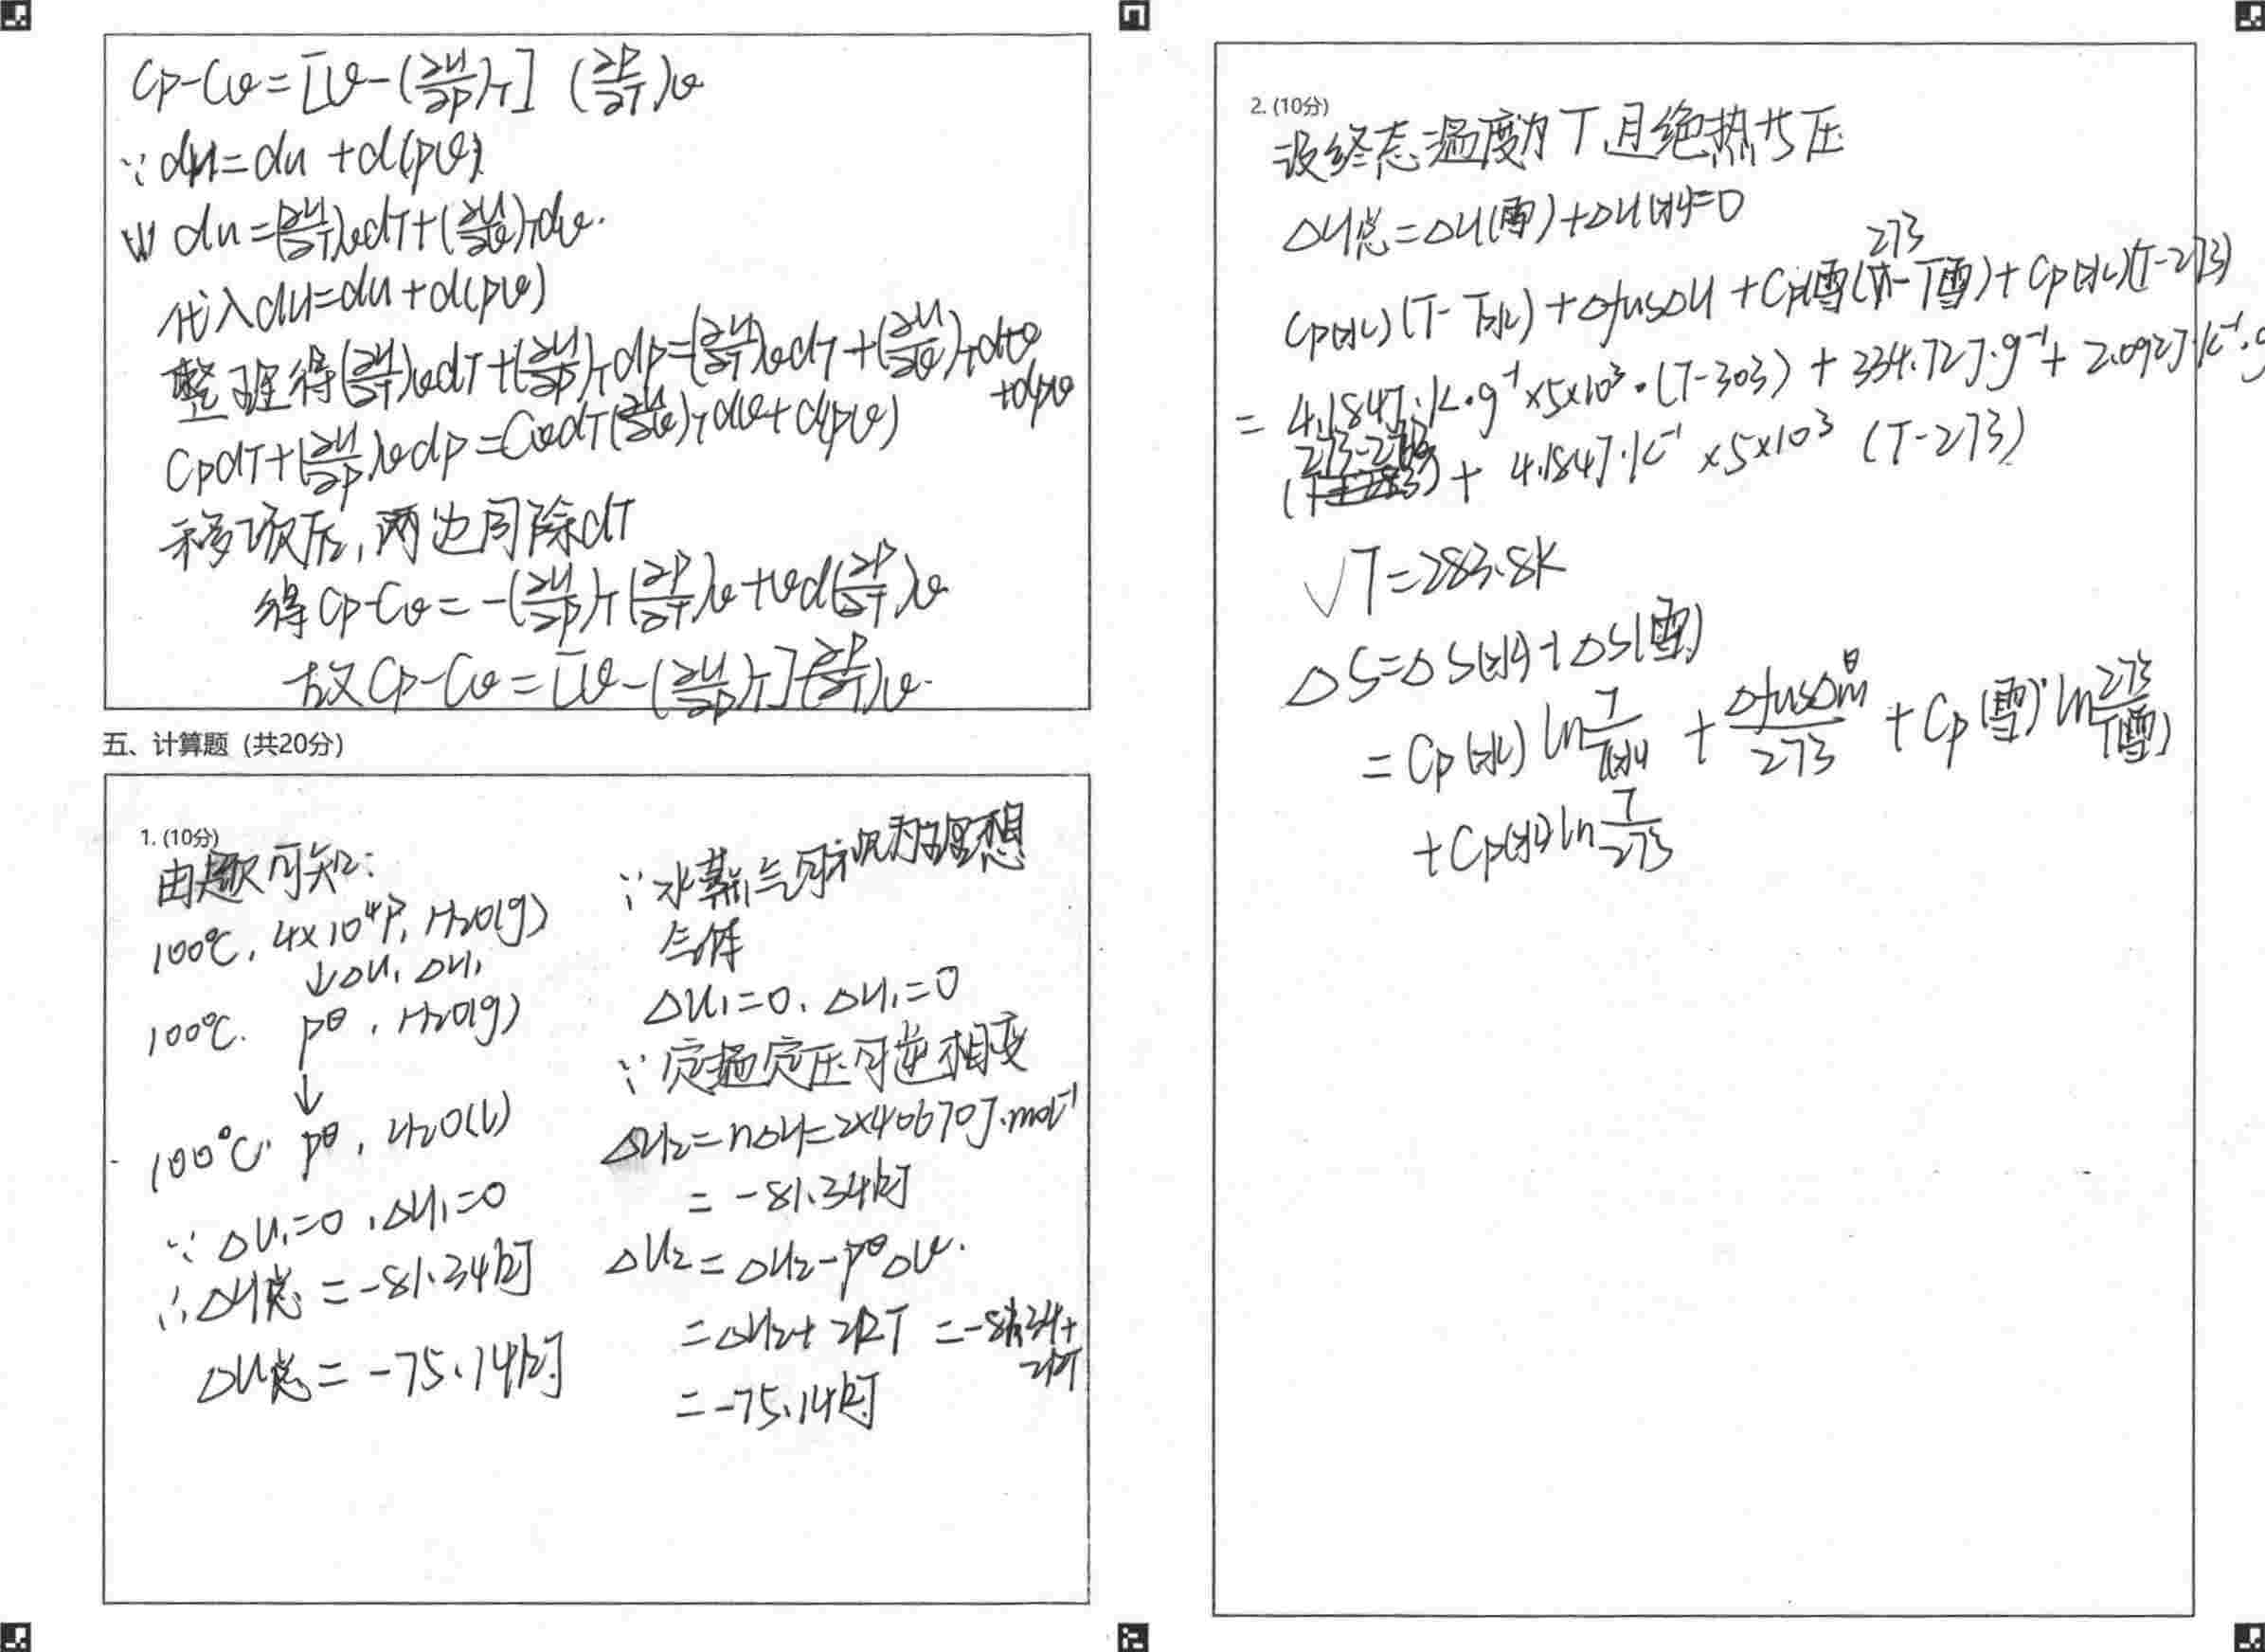 Cp-Cv=[V-(∂H/∂p)T] (∂p/∂T)v
∵dH=du+d(pV)
dU=(∂U/∂T)vdT+(∂U/∂V)TdV.
代入dH=dU+d(pV)
整理得(∂H/∂T)vdT+(∂H/∂p)Tdp=(∂U/∂T)vdT+(∂U/∂V)TdV
+dpV
CpdT+(∂H/∂p)vdp=CvdT(∂U/∂V)TdV+d(pV)
移项后,两边同除dT
得Cp-Cv=-(∂H/∂p)T(∂p/∂T)v+Vd(∂p/∂T)v
故Cp-Cv=[V-(∂H/∂p)T](∂p/∂T)v.
五、计算题 (共20分)
1. (10分)
由题可知:
100℃, 4×10⁴P, H₂O(g)
↓ΔU₁ ΔH₁
100℃. pθ, H₂O(g)
↓
100℃. pθ, H₂O(l)
∵ΔU₁=0,ΔH₁=0
∴ΔH总=-81.34kJ
ΔU总=-75.14kJ
∵水蒸气可视为理想
气体
ΔU₁=0,ΔH₁=0
∵定温定压可逆相变
ΔH₂=nΔH=2×40670J·mol⁻¹
=-81.34kJ
ΔU₂=ΔH₂-pθΔV.
=ΔH₂+2RT=-81.34+
2RT
=-75.14kJ
2. (10分)
设终态温度为T且绝热
ΔH总=ΔH(雪)+ΔH(水)=0
273
Cp(水)(T-T水)+ΔfusΔH+Cp(雪)(-T雪)+Cp(水)(T-273)
=4.184J·K·g⁻¹×5×10³·(T-303)+334.72J·g⁻¹+2.092J·K⁻¹·g
(273-)+4.184J·K⁻¹×5×10³(T-273)
√T=283.8K
ΔS=ΔS(水)+ΔS(雪)
=Cp(水)ln T/T水+ΔfusΔHmθ/273+Cp(雪)ln 273/T(雪)
+Cp(水)ln T/273